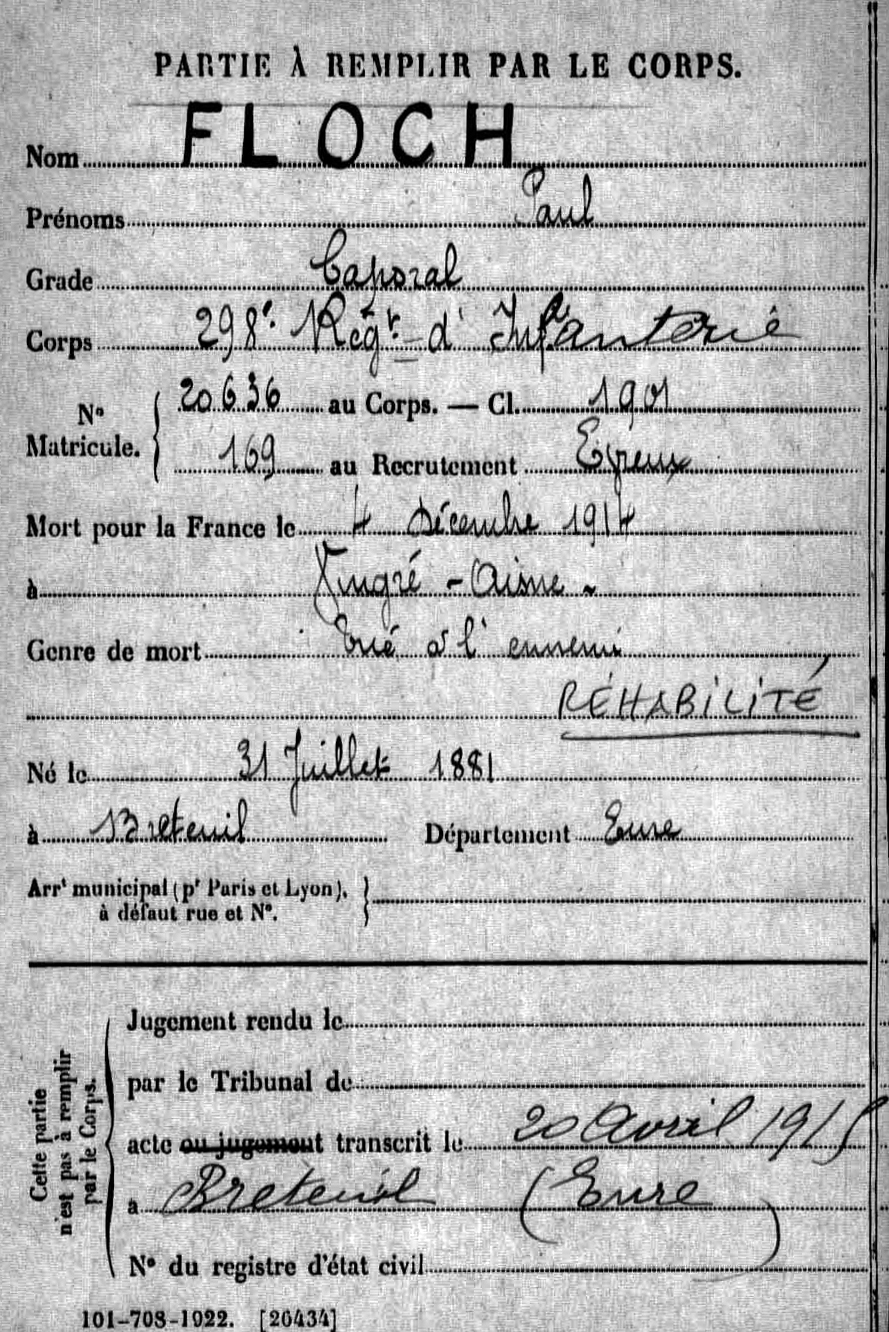 PARTIE À REMPLIR PAR LE CORPS.
Nom FLOCH
Prénoms Paul
Grade Caporal
Corps 298e Régt d'Infanterie
No Matricule. 20636 au Corps. — Cl. 1901
169 au Recrutement Evreux
Mort pour la France le 4 Décembre 1914
à Vingré - Aisne -
Genre de mort tué à l'ennemi
RÉHABILITÉ
Né le 31 Juillet 1881
à Breteuil Département Eure
Arrt municipal (pr Paris et Lyon),
à défaut rue et No.
Cette partie
n'est pas à remplir
par le Corps.
Jugement rendu le
par le Tribunal de
acte ou jugement transcrit le 20 Avril 1915
à Breteuil (Eure)
No du registre d'état civil
101-708-1922. [26434]